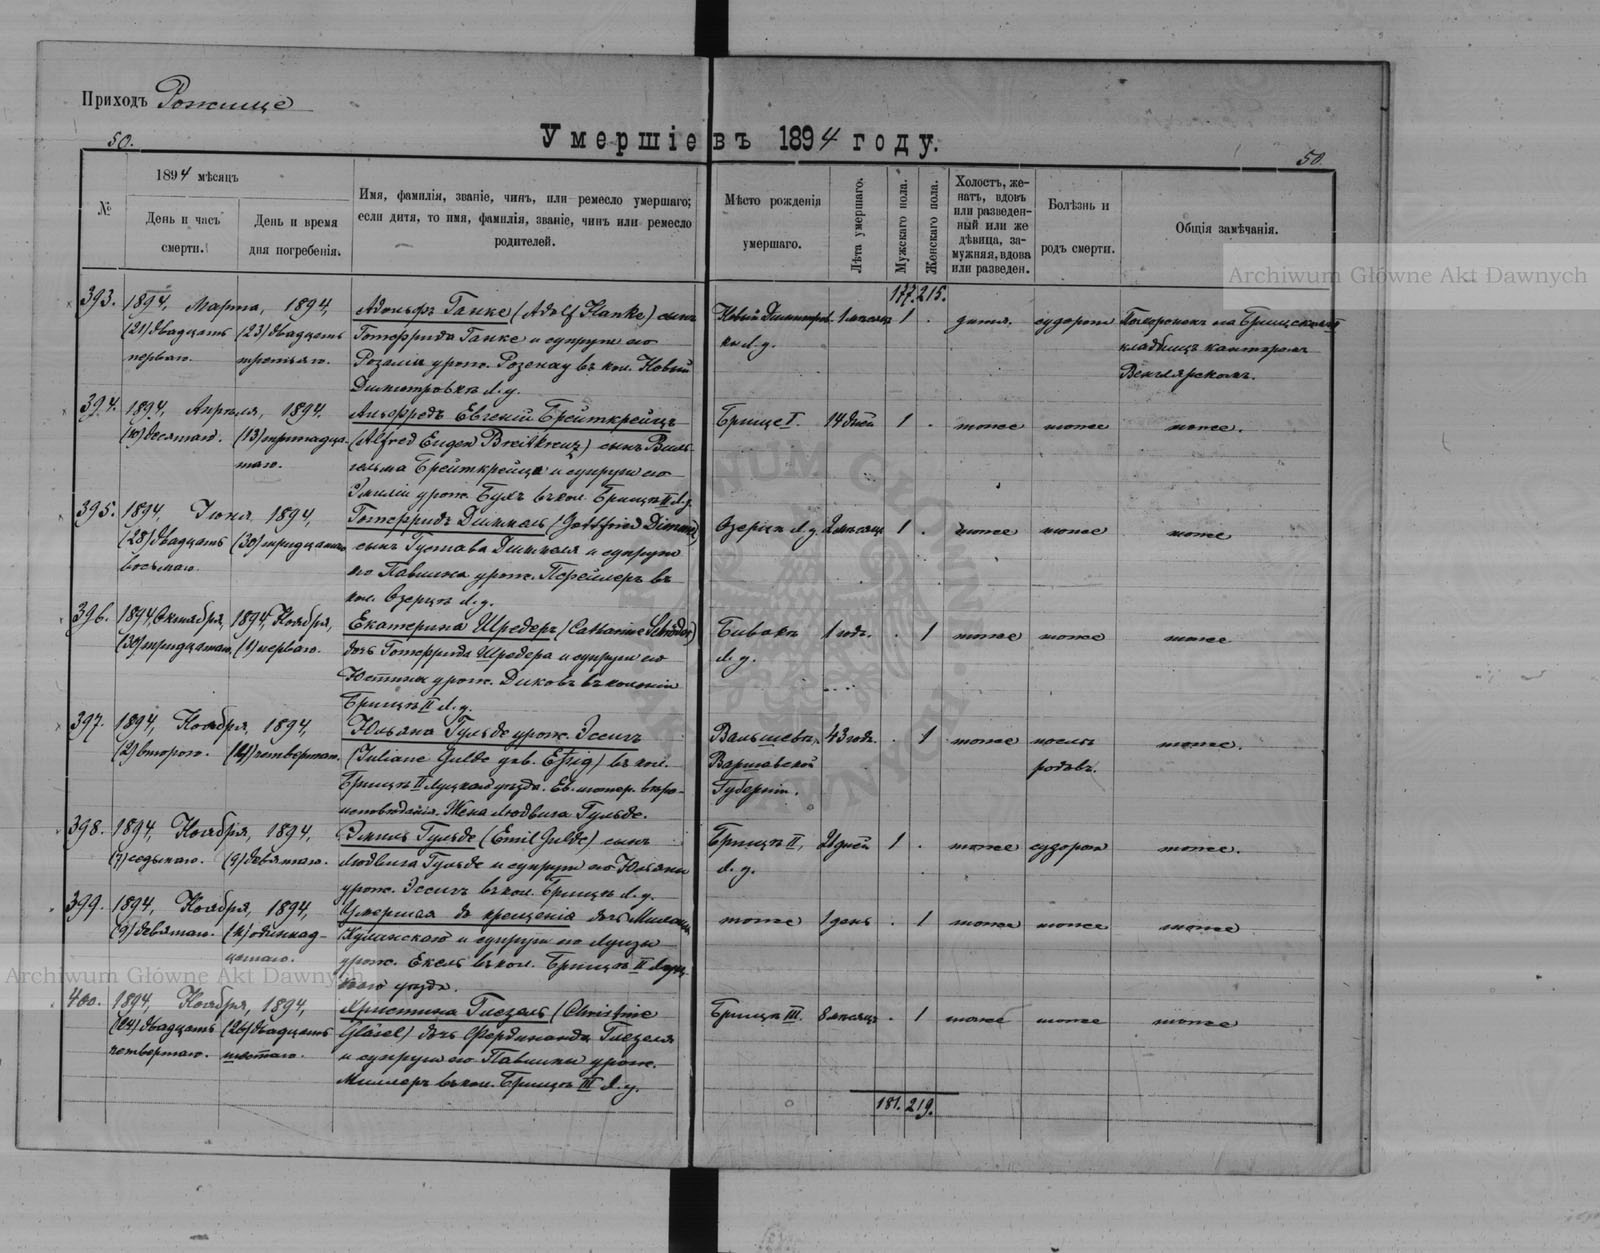 Приходъ Рожище
50.
Умершіе въ 1894 году.
50.
№
1894 мѣсяцъ
День и часъ смерти.
День и время дня погребенія.
Имя, фамилія, званіе, чинъ, или ремесло умершаго;
если дитя, то имя, фамилія, званіе, чинъ или ремесло
родителей.
Мѣсто рожденія
умершаго.
Лѣта умершаго.
Мужскаго пола.
Женскаго пола.
Холостъ, же-
натъ, вдовъ
или разведен-
ный или же
дѣвица, за-
мужняя, вдова
или разведен.
Болѣзнь и
родъ смерти.
Общія замѣчанія.
Archiwum Główne Akt Dawnych
177. 215.
393. 1894, Марта, 1894, Адольфъ Ганке (Adolf Hanke) сынъ Новый Дмитров- 1 мѣсяцъ 1 . дитя. судороги Похороненъ на Брищскомъ II
(21) двадцать (23) двадцать Готфрида Ганке и супруги его ка Л. у. кладбищѣ канторомъ
перваго. третьяго. Розаліи урож. Розенау въ кол. Новый
Дмитровкѣ Л. у.
394. 1894, Апрѣля, 1894. Альфредъ Евгеній Брейткрейцъ Брище I. 14 дней 1 . тоже тоже тоже.
(10) десятаго. (13) тринадца- (Alfred Eugen Breitkreuz) сынъ Виль-
таго. гельма Брейткрейца и супруги его
Эмиліи урож. Бухъ въ кол. Брищѣ II Л. у.
395. 1894, Іюня 1894, Готфридъ Диммель (Gottfried Dimmel) Озерцы Л. у. 2 мѣсяца 1 . тоже тоже тоже
(28) двадцать (30) тридцатаго сынъ Густава Диммеля и супруги
восьмаго. его Павлины урож. въ
кол. Озерцѣ Л. у.
396. 1894, Октября, 1894, Ноября, Екатерина Шредеръ (Catharine Schröder) 1 годъ. . 1 тоже тоже тоже
(30) тридцатаго. (1) перваго. дочь Готфрида Шредера и супруги его Л. у.
Юстины урож. Диковъ въ колоніи
Брищѣ II Л. у.
397. 1894, Ноября, 1894, Юльяна Гульде урож. Эссигъ 43 годъ. . 1 тоже послѣ тоже.
(2) второго. (4) четвертаго. (Juliane Gulde geb. Eßig) въ кол. Варшавской родовъ.
Брищѣ II Луцкаго уѣзда. Ев. лютер. вѣро- Губерніи.
исповѣданія. Жена Людвига Гульде.
398. 1894, Ноября, 1894, Эмиль Гульде (Emil Gulde) сынъ Брищѣ II, 21 дней 1 . тоже судорги тоже.
(7) седьмаго. (9) девятаго. Людвига Гульде и супруги его Юльяны Л. у.
урож. Эссигъ въ кол. Брищѣ Л. у.
399. 1894, Ноября, 1894, Умершая до крещенія дочь тоже 1 день . 1 тоже тоже тоже
(9) девятаго. (11) одиннад- и супруги его Луизы
цатаго. урож. Екель въ кол. Брищѣ II Луц-
каго уѣзда.
400. 1894, Ноября, 1894, Христина Глезель (Christine Брищѣ III. 8 мѣсяцъ . 1 тоже тоже тоже
(24) двадцать (26) двадцать Gläsel) дочь Фердинанда Глезеля
четвертаго. шестаго. и супруги его Павлины урож.
Миллеръ въ кол. Брищѣ III Л. у.
181. 219.
Archiwum Główne Akt Dawnych